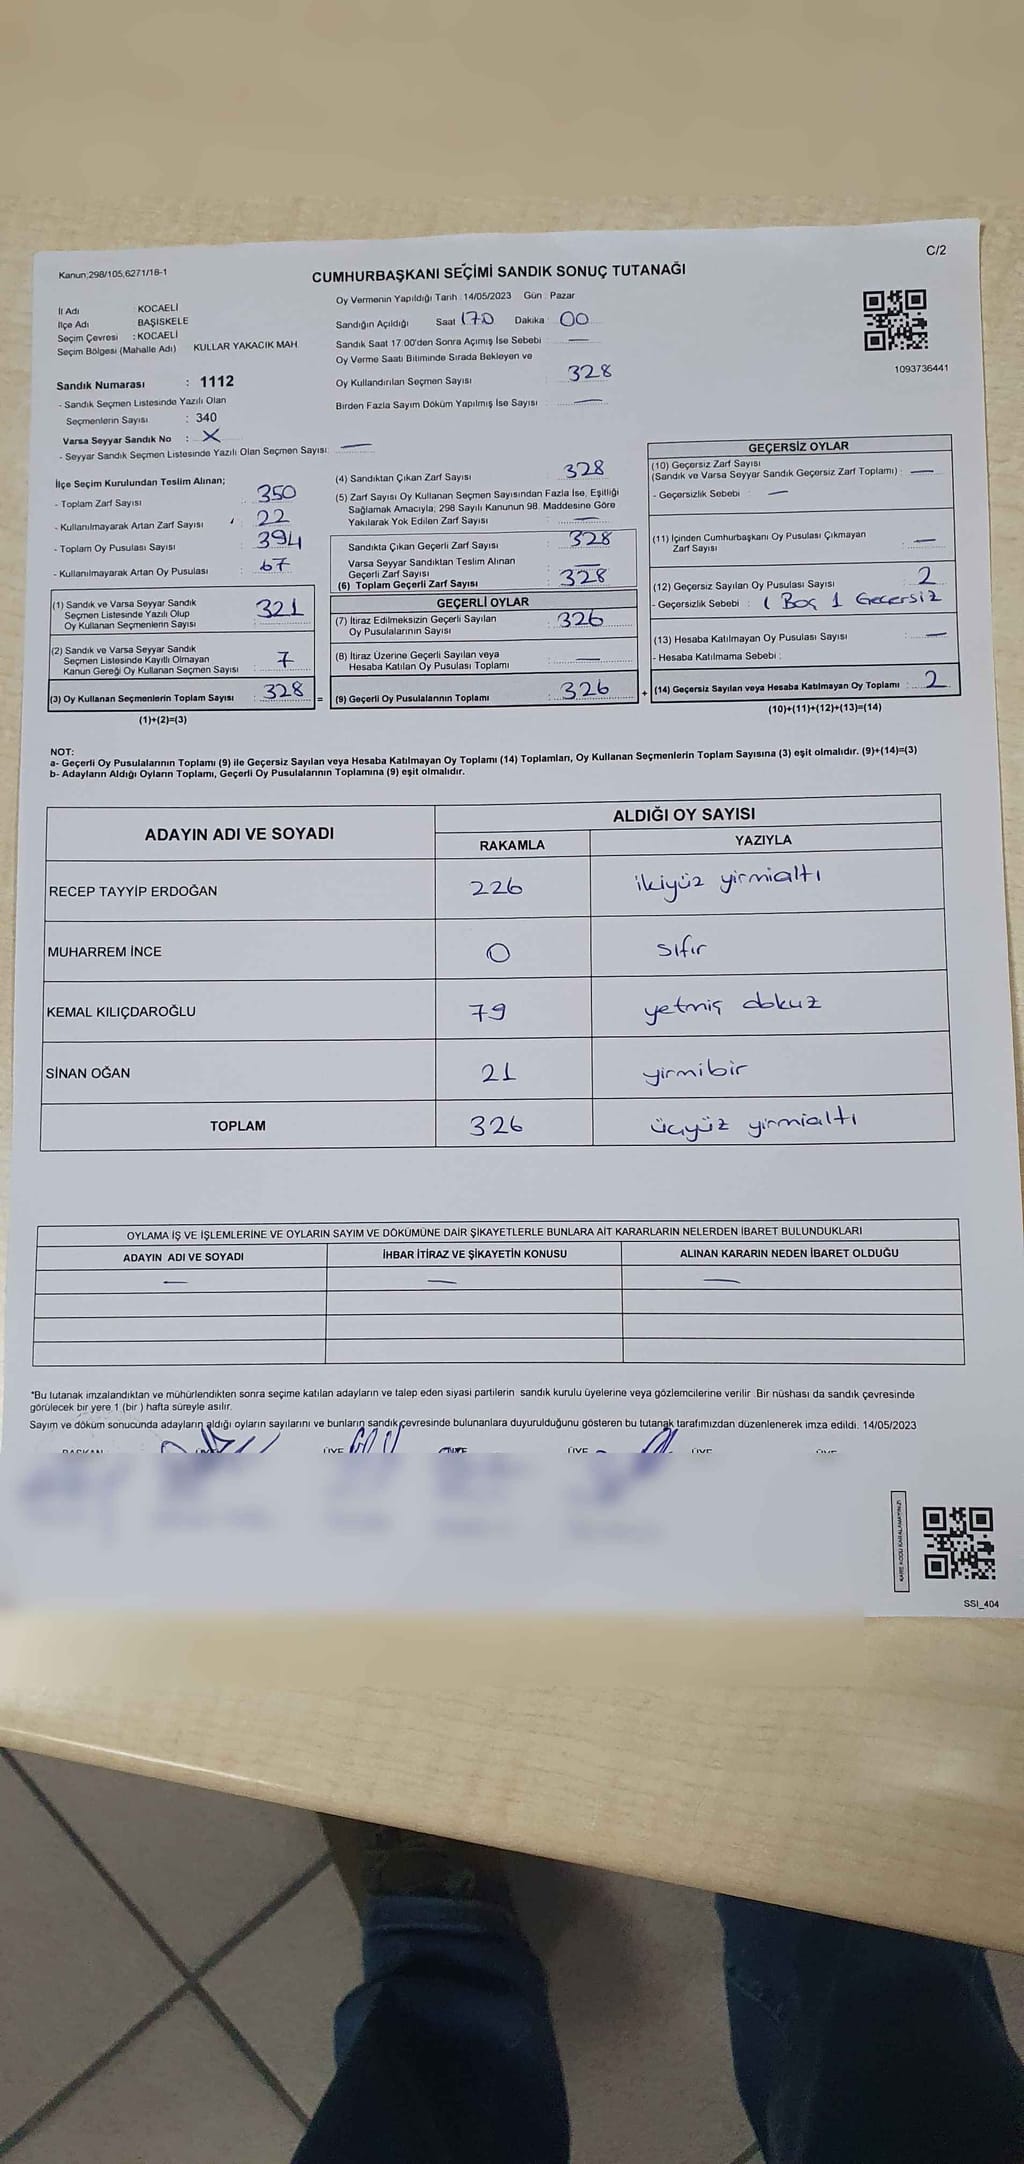 C/2
Kanun,298/105,6271/18-1
CUMHURBAŞKANI SEÇİMİ SANDIK SONUÇ TUTANAĞI
İl Adı : KOCAELİ
İlçe Adı BAŞISKELE
Seçim Çevresi : KOCAELİ
Seçim Bölgesi (Mahalle Adı) KULLAR YAKACIK MAH
Sandık Numarası : 1112
- Sandık Seçmen Listesinde Yazılı Olan
Seçmenlerin Sayısı : 340
Varsa Seyyar Sandık No : X
- Seyyar Sandık Seçmen Listesinde Yazılı Olan Seçmen Sayısı: —
Oy Vermenin Yapıldığı Tarih : 14/05/2023 Gün : Pazar
Sandığın Açıldığı Saat 170 Dakika 00
Sandık Saat 17 00'den Sonra Açımış İse Sebebi : —
Oy Verme Saati Bitiminde Sırada Bekleyen ve
Oy Kullandırılan Seçmen Sayısı : 328
Birden Fazla Sayım Döküm Yapılmış İse Sayısı : —
1093736441
İlçe Seçim Kurulundan Teslim Alınan;
- Toplam Zarf Sayısı : 350
- Kullanılmayarak Artan Zarf Sayısı : 22
- Toplam Oy Pusulası Sayısı : 394
- Kullanılmayarak Artan Oy Pusulası : 67
(1) Sandık ve Varsa Seyyar Sandık
Seçmen Listesinde Yazılı Olup
Oy Kullanan Seçmenlerin Sayısı : 321
(2) Sandık ve Varsa Seyyar Sandık
Seçmen Listesinde Kayıtlı Olmayan
Kanun Gereği Oy Kullanan Seçmen Sayısı : 7
(3) Oy Kullanan Seçmenlerin Toplam Sayısı : 328 =
(1)+(2)=(3)
(4) Sandıktan Çıkan Zarf Sayısı : 328
(5) Zarf Sayısı Oy Kullanan Seçmen Sayısından Fazla İse, Eşitliği
Sağlamak Amacıyla; 298 Sayılı Kanunun 98. Maddesine Göre
Yakılarak Yok Edilen Zarf Sayısı : —
Sandıkta Çıkan Geçerli Zarf Sayısı : 328
Varsa Seyyar Sandıktan Teslim Alınan
Geçerli Zarf Sayısı : —
(6) Toplam Geçerli Zarf Sayısı : 328
GEÇERLİ OYLAR
(7) İtiraz Edilmeksizin Geçerli Sayılan
Oy Pusulalarının Sayısı : 326
(8) İtiraz Üzerine Geçerli Sayılan veya
Hesaba Katılan Oy Pusulası Toplamı : —
(9) Geçerli Oy Pusulalarının Toplamı : 326 +
GEÇERSİZ OYLAR
(10) Geçersiz Zarf Sayısı
(Sandık ve Varsa Seyyar Sandık Geçersiz Zarf Toplamı) : —
- Geçersizlik Sebebi : —
(11) İçinden Cumhurbaşkanı Oy Pusulası Çıkmayan
Zarf Sayısı : —
(12) Geçersiz Sayılan Oy Pusulası Sayısı : 2
- Geçersizlik Sebebi : 1 Boş 1 Geçersiz
(13) Hesaba Katılmayan Oy Pusulası Sayısı : —
- Hesaba Katılmama Sebebi :
(14) Geçersiz Sayılan veya Hesaba Katılmayan Oy Toplamı : 2
(10)+(11)+(12)+(13)=(14)
NOT:
a- Geçerli Oy Pusulalarının Toplamı (9) ile Geçersiz Sayılan veya Hesaba Katılmayan Oy Toplamı (14) Toplamları, Oy Kullanan Seçmenlerin Toplam Sayısına (3) eşit olmalıdır. (9)+(14)=(3)
b- Adayların Aldığı Oyların Toplamı, Geçerli Oy Pusulalarının Toplamına (9) eşit olmalıdır.
ADAYIN ADI VE SOYADI ALDIĞI OY SAYISI
RAKAMLA YAZIYLA
RECEP TAYYİP ERDOĞAN 226 ikiyüz yirmialtı
MUHARREM İNCE 0 sıfır
KEMAL KILIÇDAROĞLU 79 yetmiş dokuz
SİNAN OĞAN 21 yirmibir
TOPLAM 326 üçyüz yirmialtı
OYLAMA İŞ VE İŞLEMLERİNE VE OYLARIN SAYIM VE DÖKÜMÜNE DAİR ŞİKAYETLERLE BUNLARA AİT KARARLARIN NELERDEN İBARET BULUNDUKLARI
ADAYIN ADI VE SOYADI İHBAR İTİRAZ VE ŞİKAYETİN KONUSU ALINAN KARARIN NEDEN İBARET OLDUĞU
— — —
*Bu tutanak imzalandıktan ve mühürlendikten sonra seçime katılan adayların ve talep eden siyasi partilerin sandık kurulu üyelerine veya gözlemcilerine verilir. Bir nüshası da sandık çevresinde
görülecek bir yere 1 (bir ) hafta süreyle asılır.
Sayım ve döküm sonucunda adayların aldığı oyların sayılarını ve bunların sandık çevresinde bulunanlara duyurulduğunu gösteren bu tutanak tarafımızdan düzenlenerek imza edildi. 14/05/2023
BAŞKAN ÜYE ÜYE ÜYE ÜYE ÜYE
KARE KODU KARALAMAYINIZ!
SSI_404